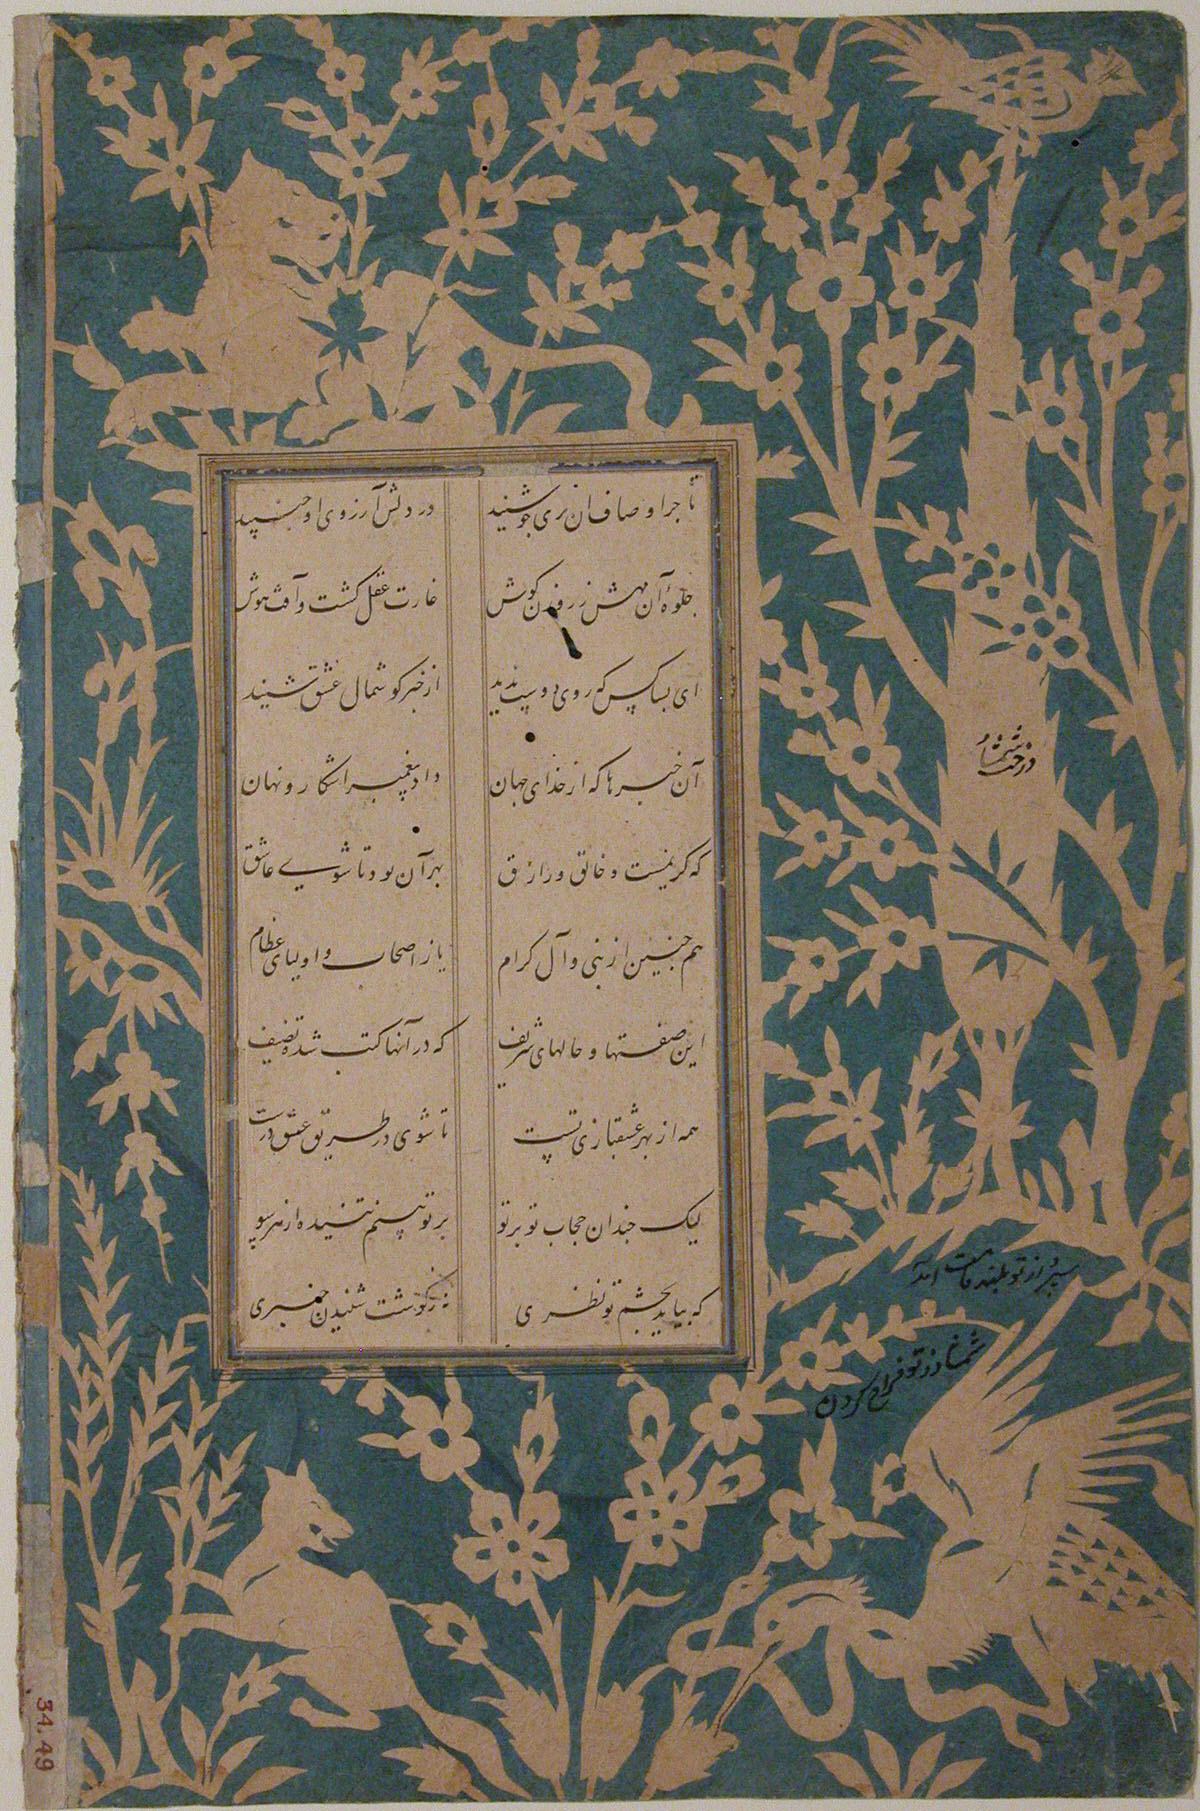 تا جرا وصاف ان بری جوشنید در دلش آرزوی او جنبید
جلوهٔ آن مهش ز رفدن کوش غارت عقل کشت و آفت هوش
ای بسا کس که روی دوست ندید از خبر کوشمال عشق شنید
آن خبرها که از خدای جهان داد پیغمبر اشکار و نهان
که کریمست و خالق و رازق بهر آن بود تا شوی عاشق
هم جنین از نبی و آل کرام یا ز اصحاب و اولیای عظام
این صفتها و حالهای شریف که در آنها کتب شده تصنیف
همه از بهر عشقبازی تست تا شوی در طریق عشق درست
لیک جندان حجاب تو بر تو بر تو بینم تنیده از هر سو
که بیاید بجشم تو نظری نه ز کوشت شنیدن خبری
درخت
از تو بلند قامت آمد
از تو کردن
34.49